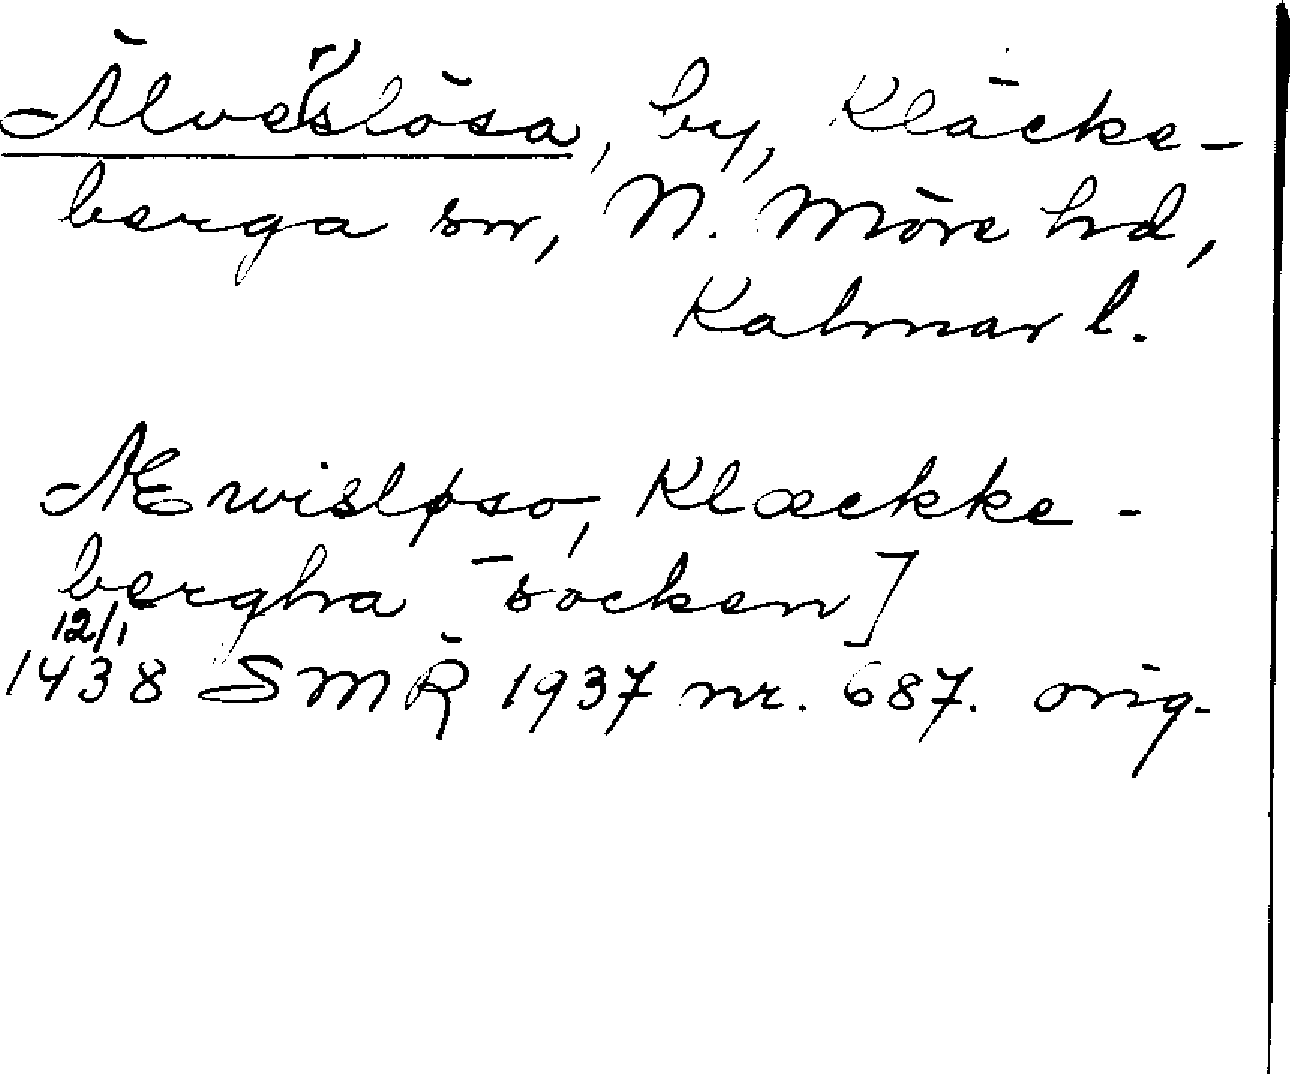 Älverslösa, by, Kläcke-
berga sn, N. Möre hd,
Kalmar l.
Æwisløso, Klæckke-
berghra socken]
12/1
1438 SMR 1937 nr. 687. orig.